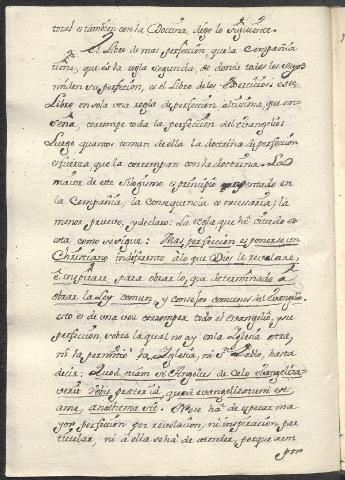 total o tambien con la Doctrina, digo lo siguiente.
El Libro de mas perfeccion que la Compañia
tiene, que es la regla segunda, de donde todos los suyos
miden su perfecion, es el Libro de los Exercicios: este
Libro en sola una regla de perfeccion altissima, que en-
seña, corrompe toda la perfeccion del evangelio:
Luego quantos toman de ella la doctrina de perfeccion
es fuerza, que la corrompan con la doctrina. La
maior de este silogismo es principio asentado en
la Compañia; la consequencia es necessaria; la
menor pruevo, y declaro: La regla que he citado es
esta como se sigue: Mas perfeccion es ponerse un
Christiano indiferente à lo que Dios le revelare,
è inspirare, para obrarlo, que determinado à
obrar la Ley comun, y consejos comunes del Evangelio.
esto es de una vez corromper todo el evangelio, y su
perfeccion, sobre la qual no ay en la Iglesia otra,
ni la permitio la Iglesia, ni Sn. Pablo, hasta
decir: Quod etiam si Angelus de Celo evangeliza-
verit vobis, preter id, quod evangelizatum est
a me, anathema sit. No se ha de esperar ma-
yor perfeccion por revelacion, ni inspiracion par-
ticular, ni à ella se ha de atender, porque aun